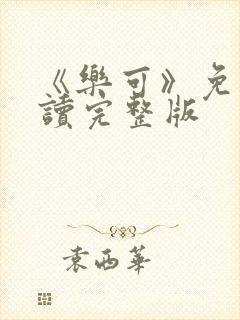 《樂可》免
讀完整版
袁西華